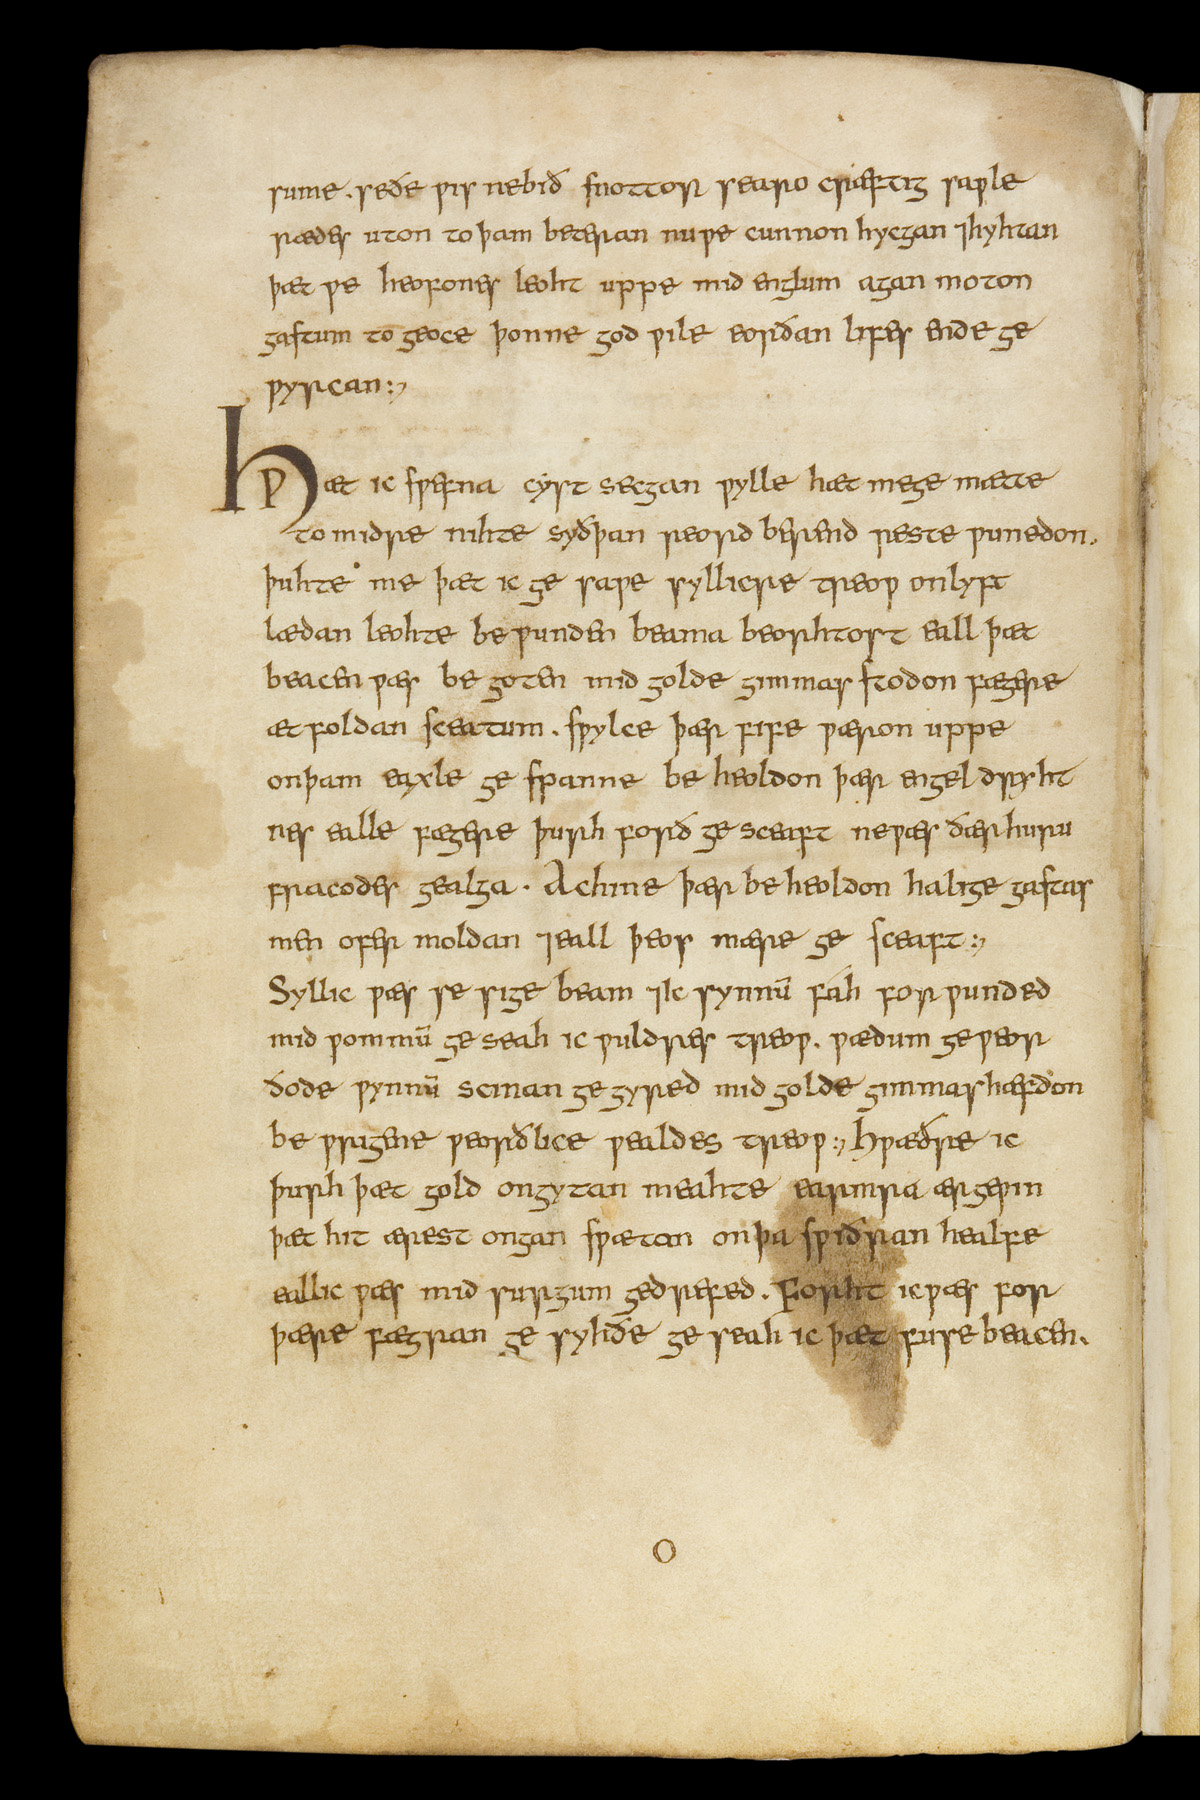 sume . seðe ƿis nebið snottor searo cræftig saƿle
rædes uton to þam beteran nuƿe cunnon hycgan ⁊hyhtan
þæt ƿe heofones leoht uppe mid englum agan moton
gastum to geoce þonne god ƿile eorðan lifes ende ge
ƿyrcan :⁊
Hƿæt ic sƿefna cyst secgan ƿylle hæt mege mætte
to midre nihte syðþan reord berend reste ƿunedon .
þuhte me þæt ic ge saƿe syllicre treoƿ onlyft
lædan leohte be ƿunden beama beorhtost eall þæt
beacen ƿæs be goten mid golde gimmas stodon fægere
æt foldan sceatum . sƿylce þær fife ƿæron uppe
onþam eaxle ge sƿanne be heoldon þær engel dryht
nes ealle fægere þurh forð ge sceaft neƿæs ðær huru
fracodes gealga . Ac hine þær be heoldon halige gastas
men ofer moldan ⁊eall þeos mære ge sceaft :⁊
Syllic ƿæs se sige beam ⁊ic synnū fáh forƿunded
mid ƿommū ge seah ic ƿuldres treoƿ . ƿædum geƿeor
ðode ƿynnū scinan ge gyred mid golde gimmas hæfdon
be ƿrigene ƿeorðlice ƿealdes treoƿ :⁊ Hƿæðre ic
þurh þæt gold ongytan meahte earmra ærgeƿin
þæt hit ærest ongan sƿætan onþa sƿiðran healfe
eallic ƿæs mid surgum gedrefed . Forht icƿæs for
þære fægran ge syhðe ge seah ic þæt fuse beacen .
O